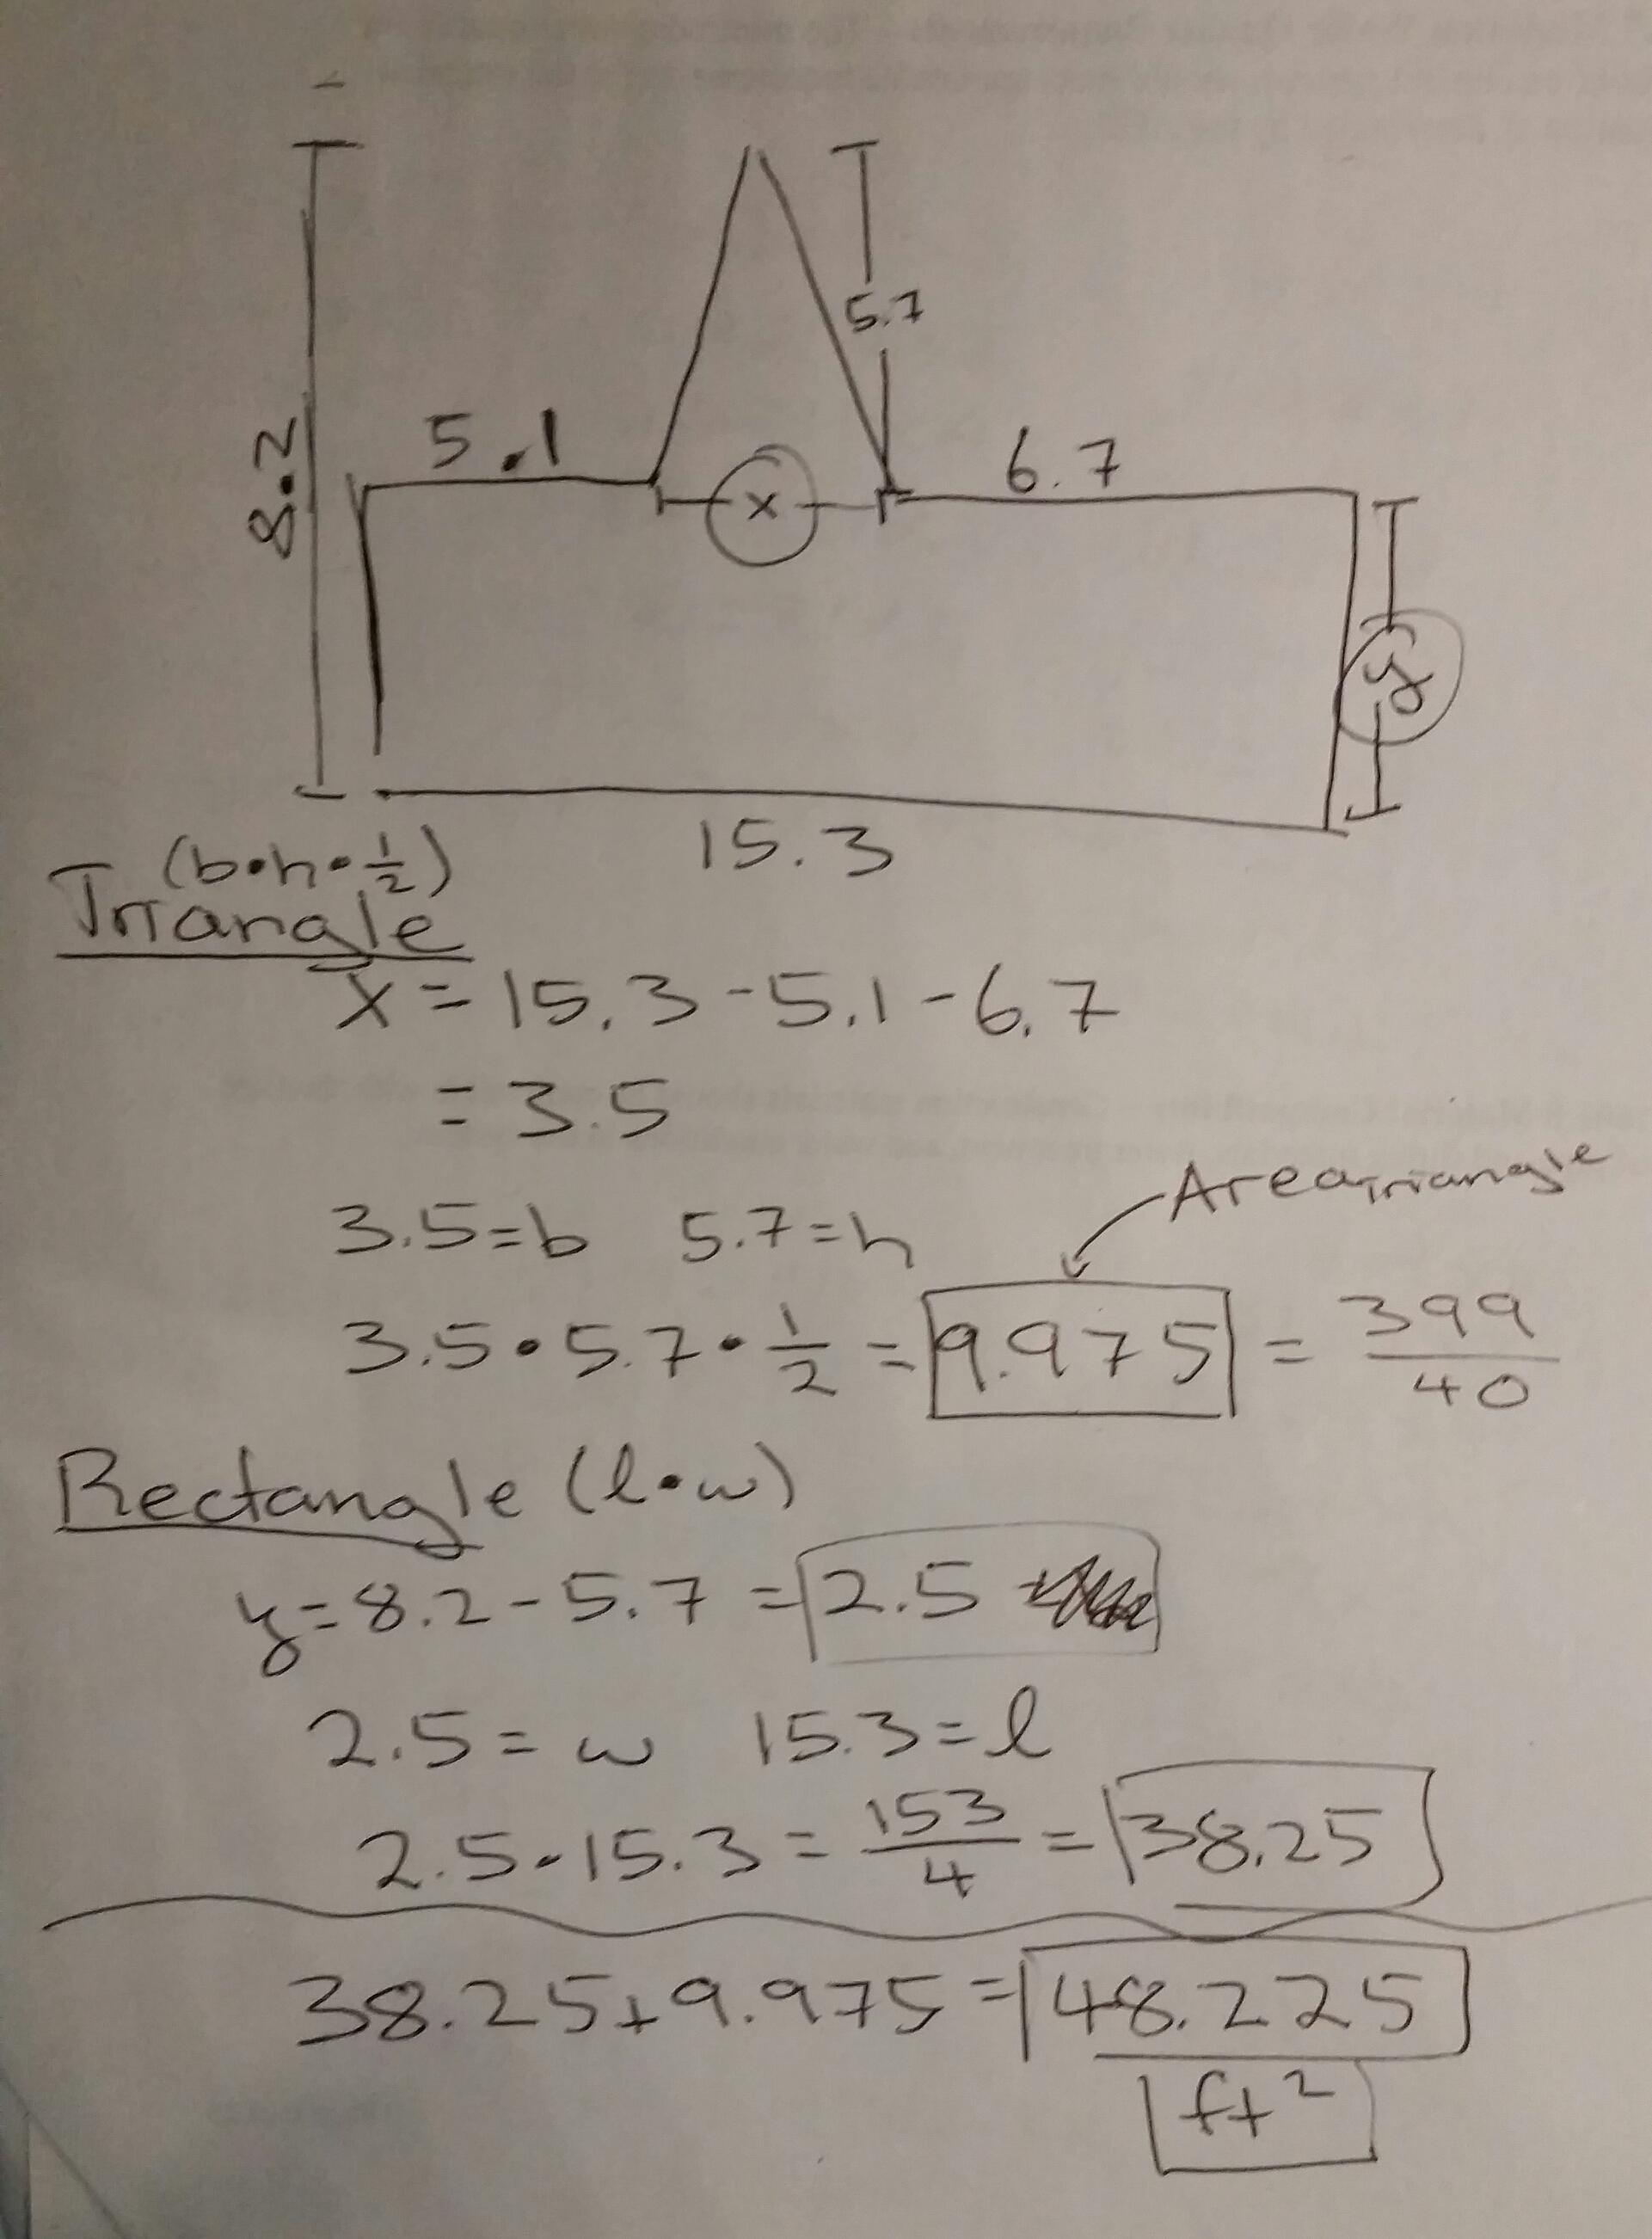 5.7
5.1
6.7
8.2
x
y
15.3
(b•h•½)
Triangle
x = 15.3 - 5.1 - 6.7
= 3.5
Area Triangle
3.5 = b 5.7 = h
3.5 • 5.7 • ½ = 9.975 = 399/40
Rectangle (l•w)
y = 8.2 - 5.7 = 2.5
2.5 = w 15.3 = l
2.5 • 15.3 = 153/4 = 38.25
38.25 + 9.975 = 48.225
ft²